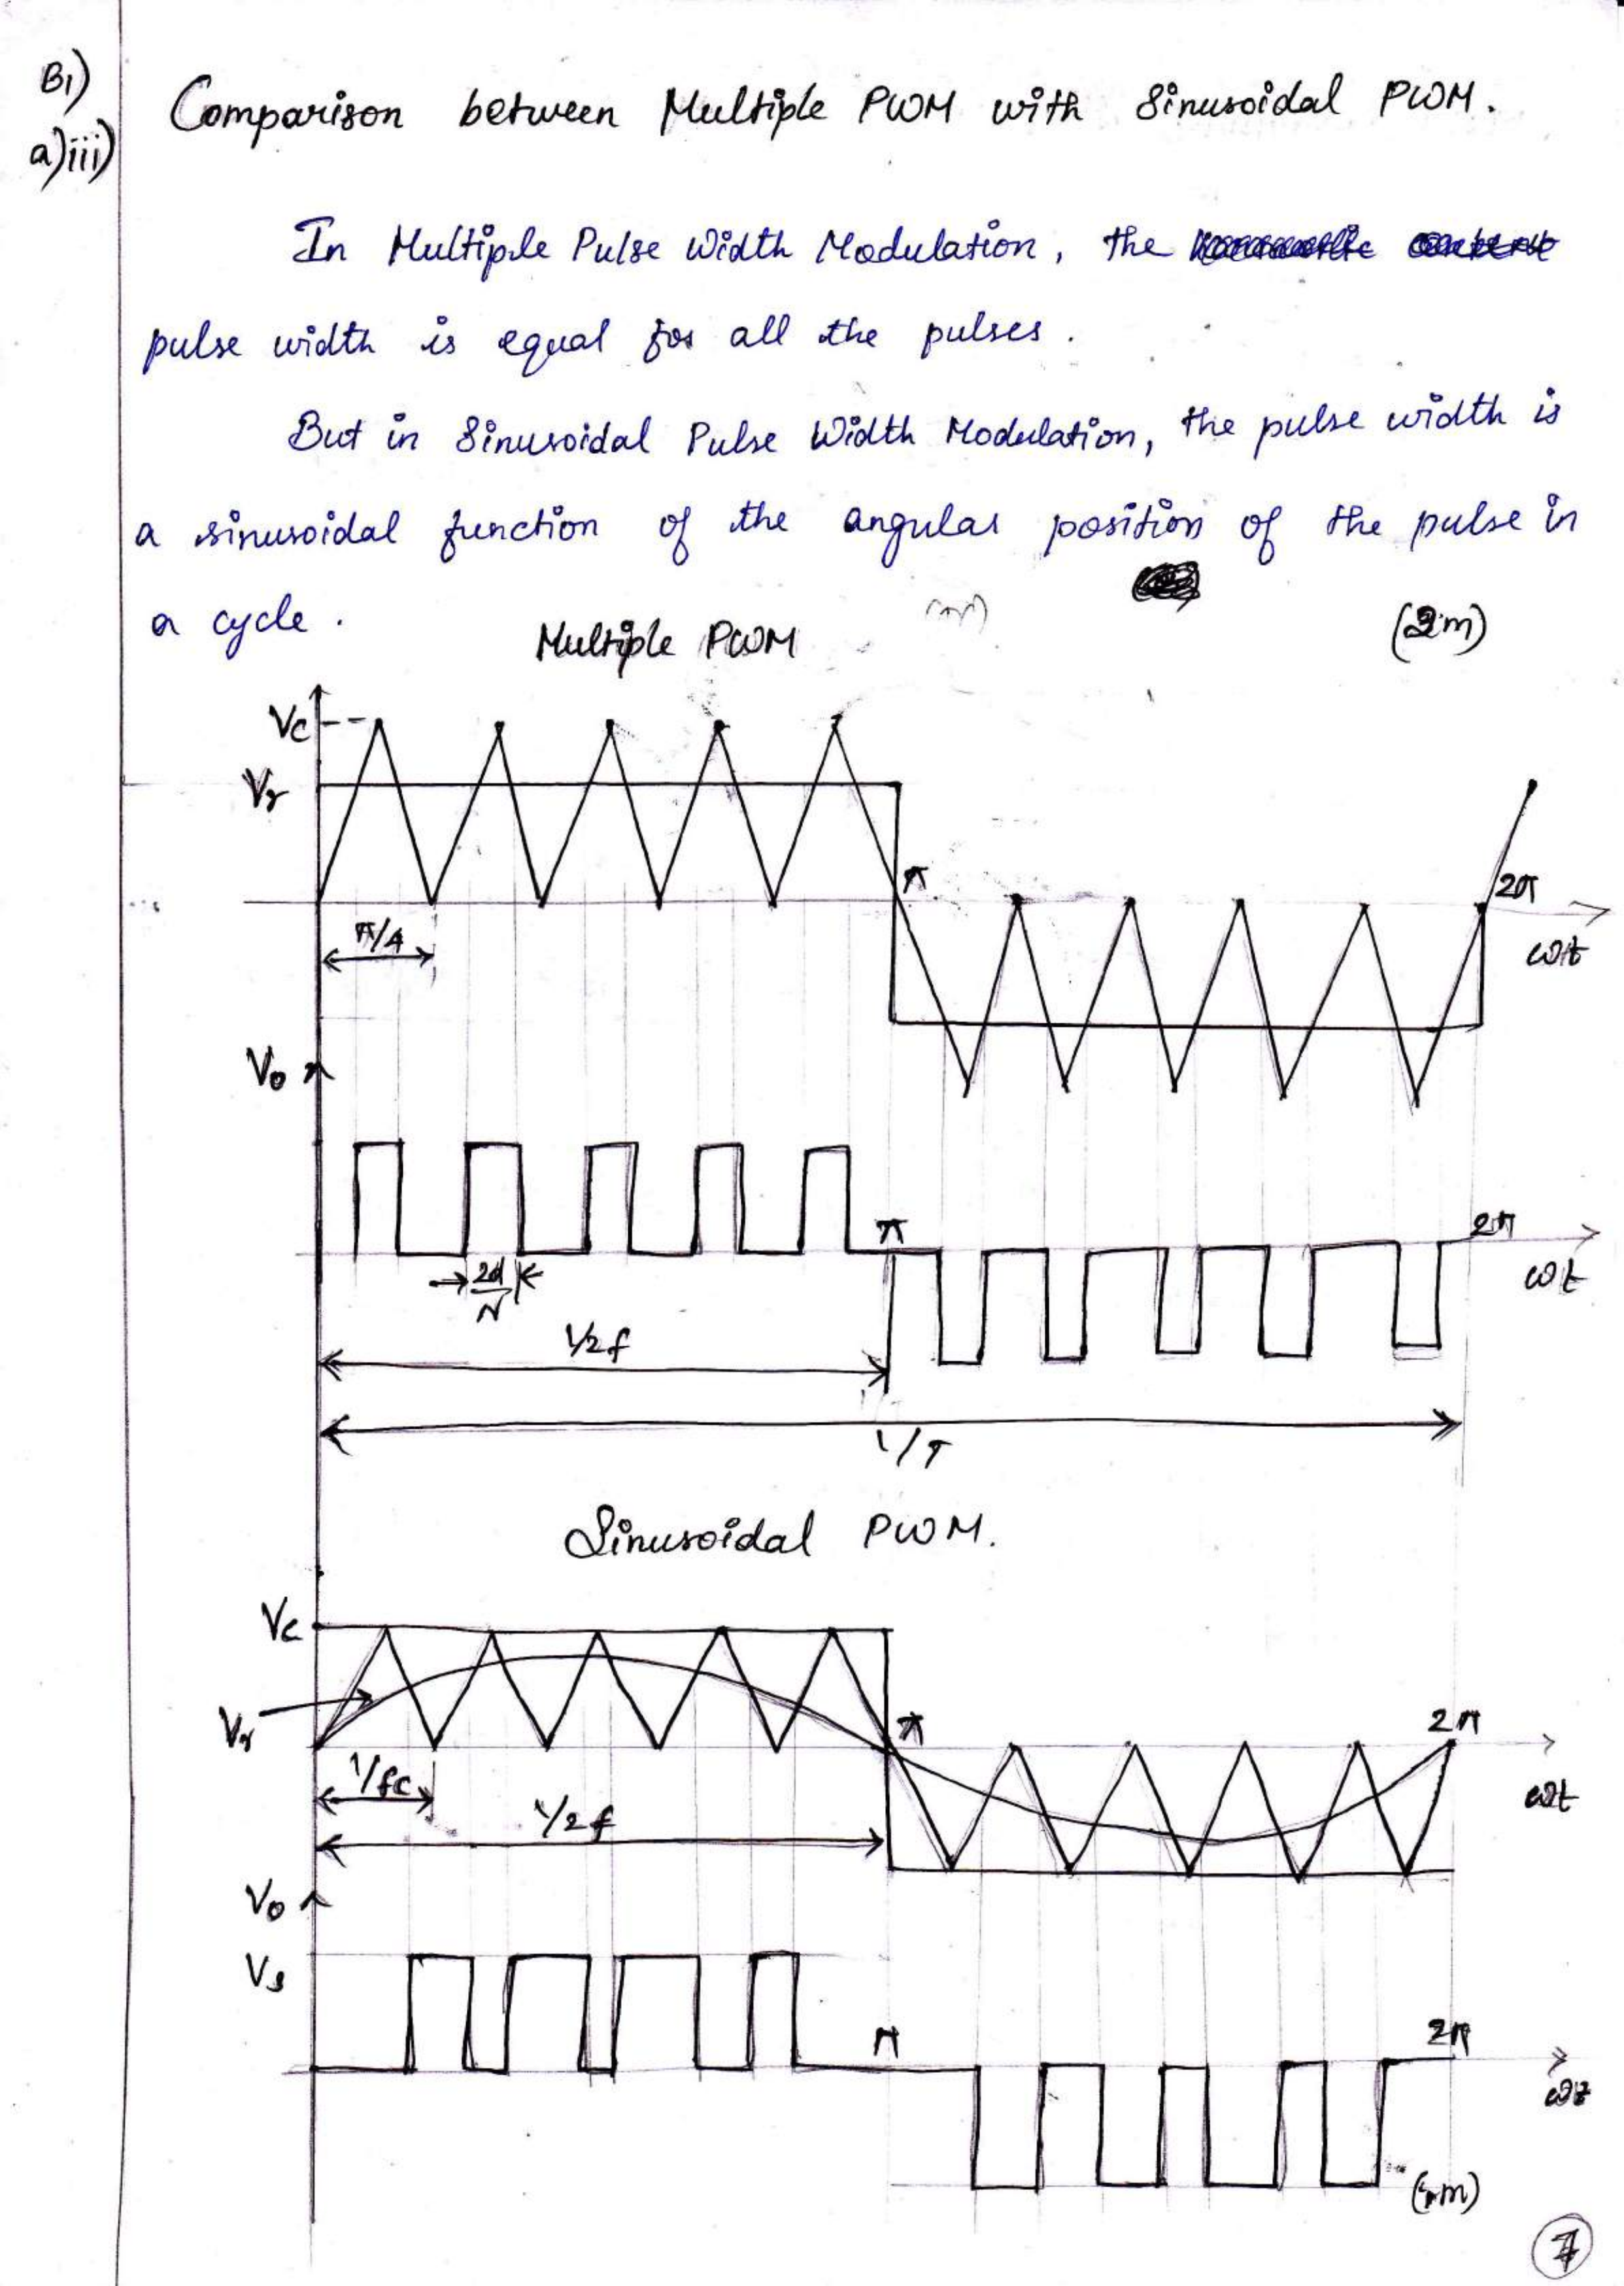 B1)
a)iii)
Comparison between Multiple PWM with Sinusoidal PWM.
In Multiple Pulse Width Modulation, the
pulse width is equal for all the pulses.
But in Sinusoidal Pulse Width Modulation, the pulse width is
a sinusoidal function of the angular position of the pulse in
a cycle.
(2m)
Multiple PWM
Vc
Vr
π
2π
π/4
ωt
Vo
π
2π
2d/N
ωt
1/2f
1/T
Sinusoidal PWM.
Vc
Vr
π
2π
1/fc
ωt
1/2f
Vo
Vs
π
2π
ωt
7